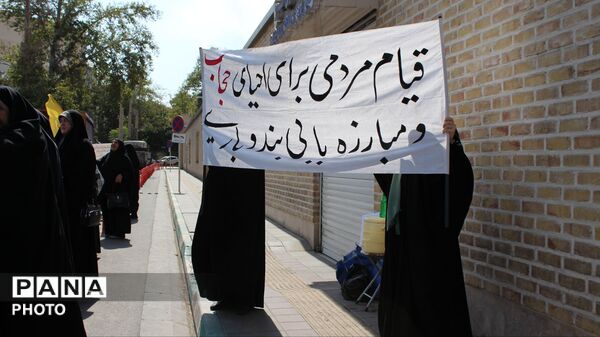 قیام مردمی برای احیای حجاب
و مبارزه با بی بند و باری
PANA
PHOTO